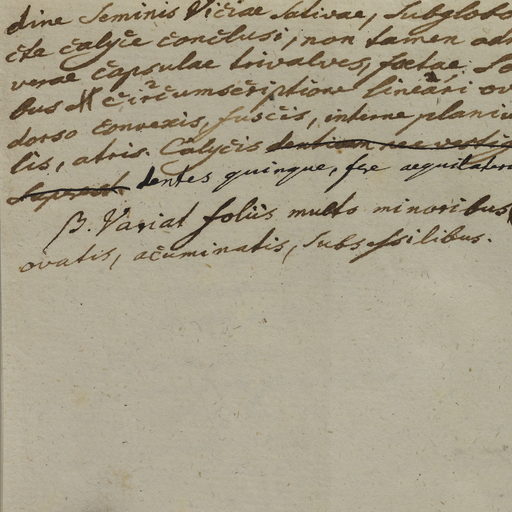 dine Seminis Viciae Sativae, Subglobo
cte calyce conclusi, non tamen ad
verae capsulae trivalves, foetae. Se
bus circumscriptione lineari ov
dorso convexis, fuscis, interne planiu
lis, atris. Calycis dentium nec vestig
dentes quinque, fere aequilater
β. Variat foliis multo minoribus
ovatis, acuminatis, subsessilibus.